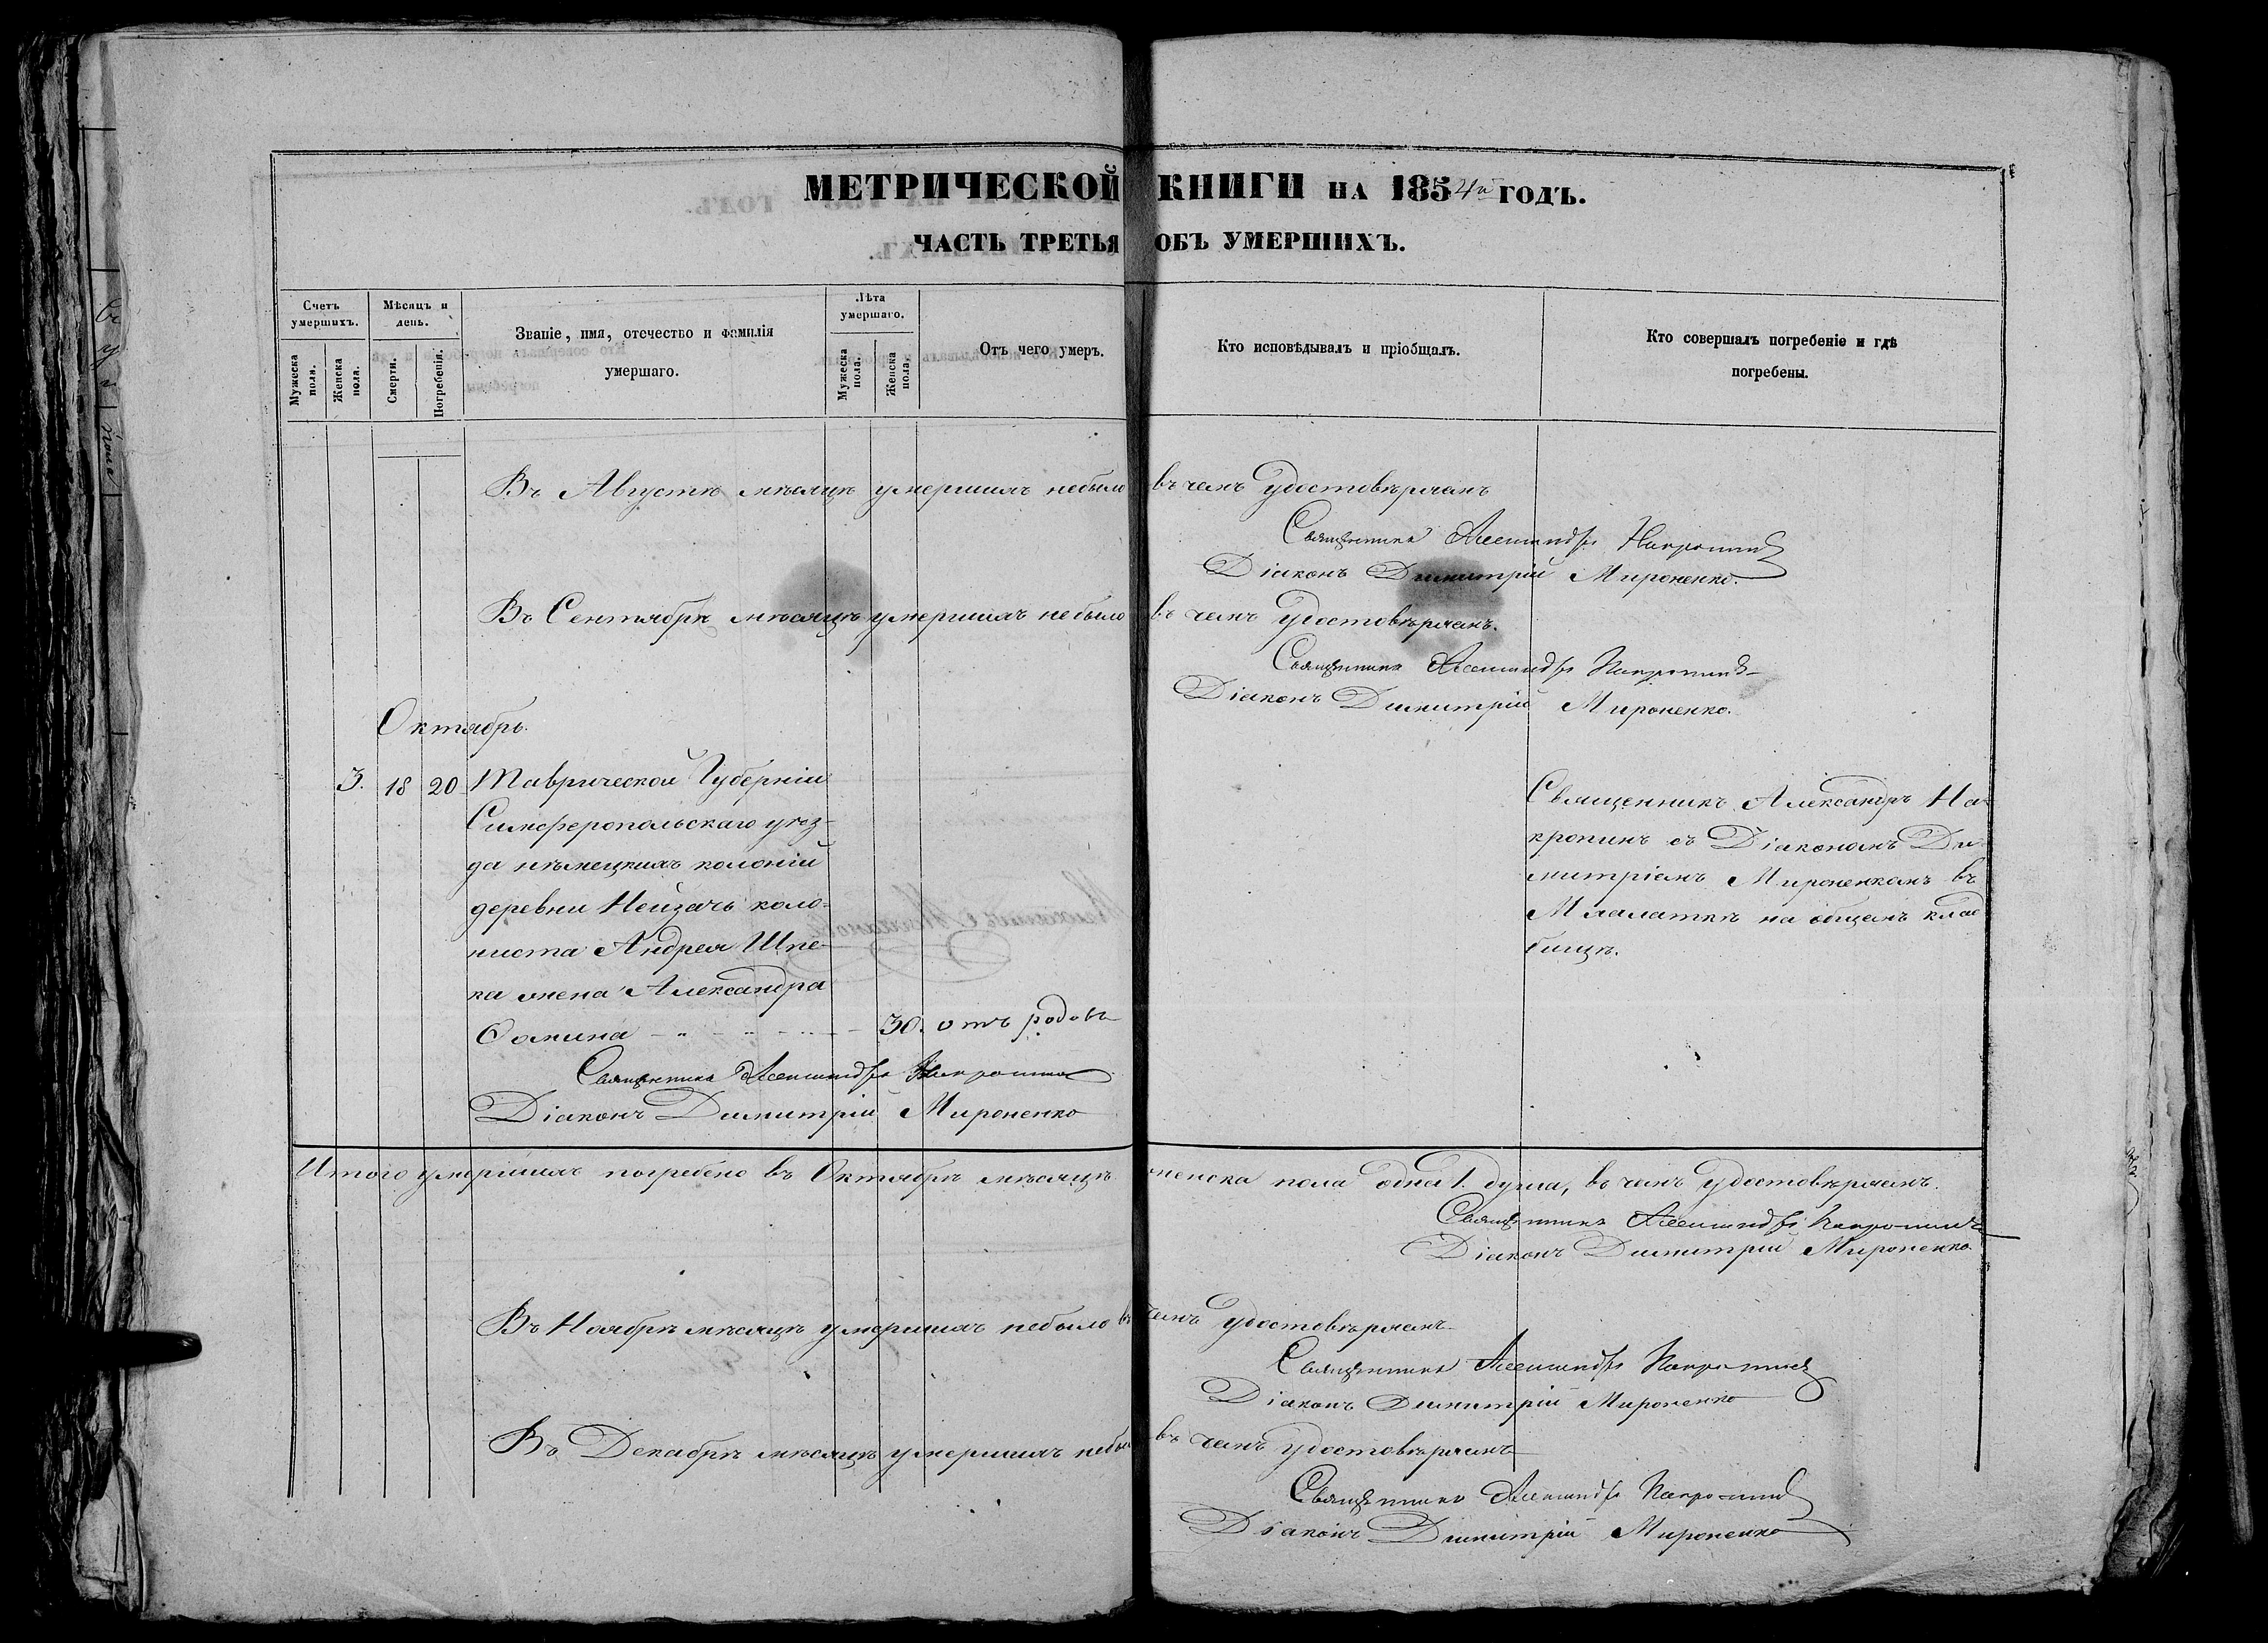 МЕТРИЧЕСКОЙ КНИГИ НА 1854й ГОДЪ.
ЧАСТЬ ТРЕТЬЯ ОБЪ УМЕРШИХЪ.
Счетъ умершихъ.
Мужеска пола.
Женска пола.
Мѣсяцъ и день.
Смерти.
Погребенія.
Званіе, имя, отечество и фамилія
умершаго.
Лѣта умершаго.
Мужеска пола.
Женска пола.
Отъ чего умеръ.
Кто исповѣдывалъ и пріобщалъ.
Кто совершалъ погребеніе и гдѣ
погребены.
Въ Августѣ мѣсяцѣ умершихъ небыло въ чемъ удостовѣряемъ
Священникъ Александръ Накропинъ
Діаконъ Димитрій Мироненко.
Въ Сентябрѣ мѣсяцѣ умершихъ небыло въ чемъ удостовѣряемъ.
Священникъ Александръ Накропинъ
Діаконъ Димитрій Мироненко.
Октябрь.
3. 18 20 Таврической Губерніи
Симферопольскаго уѣз-
да нѣмецкихъ колоній
деревни Нейзачъ коло-
ниста Андрея Шпе-
ка жена Александра
Ѳомина 30. отъ родовъ
Священникъ Александръ На-
кропинъ съ Діакономъ Ди-
митріемъ Мироненкомъ въ
на общемъ клад-
бищѣ.
Священникъ Александръ Накропинъ
Діаконъ Димитрій Мироненко
Итого умершихъ погребено въ Октябрѣ мѣсяцѣ женска пола одна 1. душа, въ чемъ удостовѣряемъ.
Священникъ Александръ Накропинъ
Діаконъ Димитрій Мироненко
Въ Ноябрѣ мѣсяцѣ умершихъ небыло въ чемъ удостовѣряемъ
Священникъ Александръ Накропинъ
Діаконъ Димитрій Мироненко
Въ Декабрѣ мѣсяцѣ умершихъ небыло въ чемъ удостовѣряемъ
Священникъ Александръ Накропинъ
Діаконъ Димитрій Мироненко